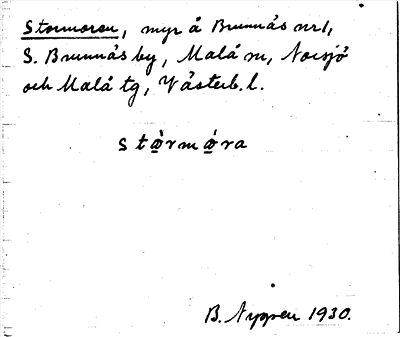 Stormoran, myr å Brunnås nr 1,
S. Brunnås by, Malå sn, Norsjö
och Malå tg, Västerb. l.
stò̱rmó̱ra
B. Nygren 1930.